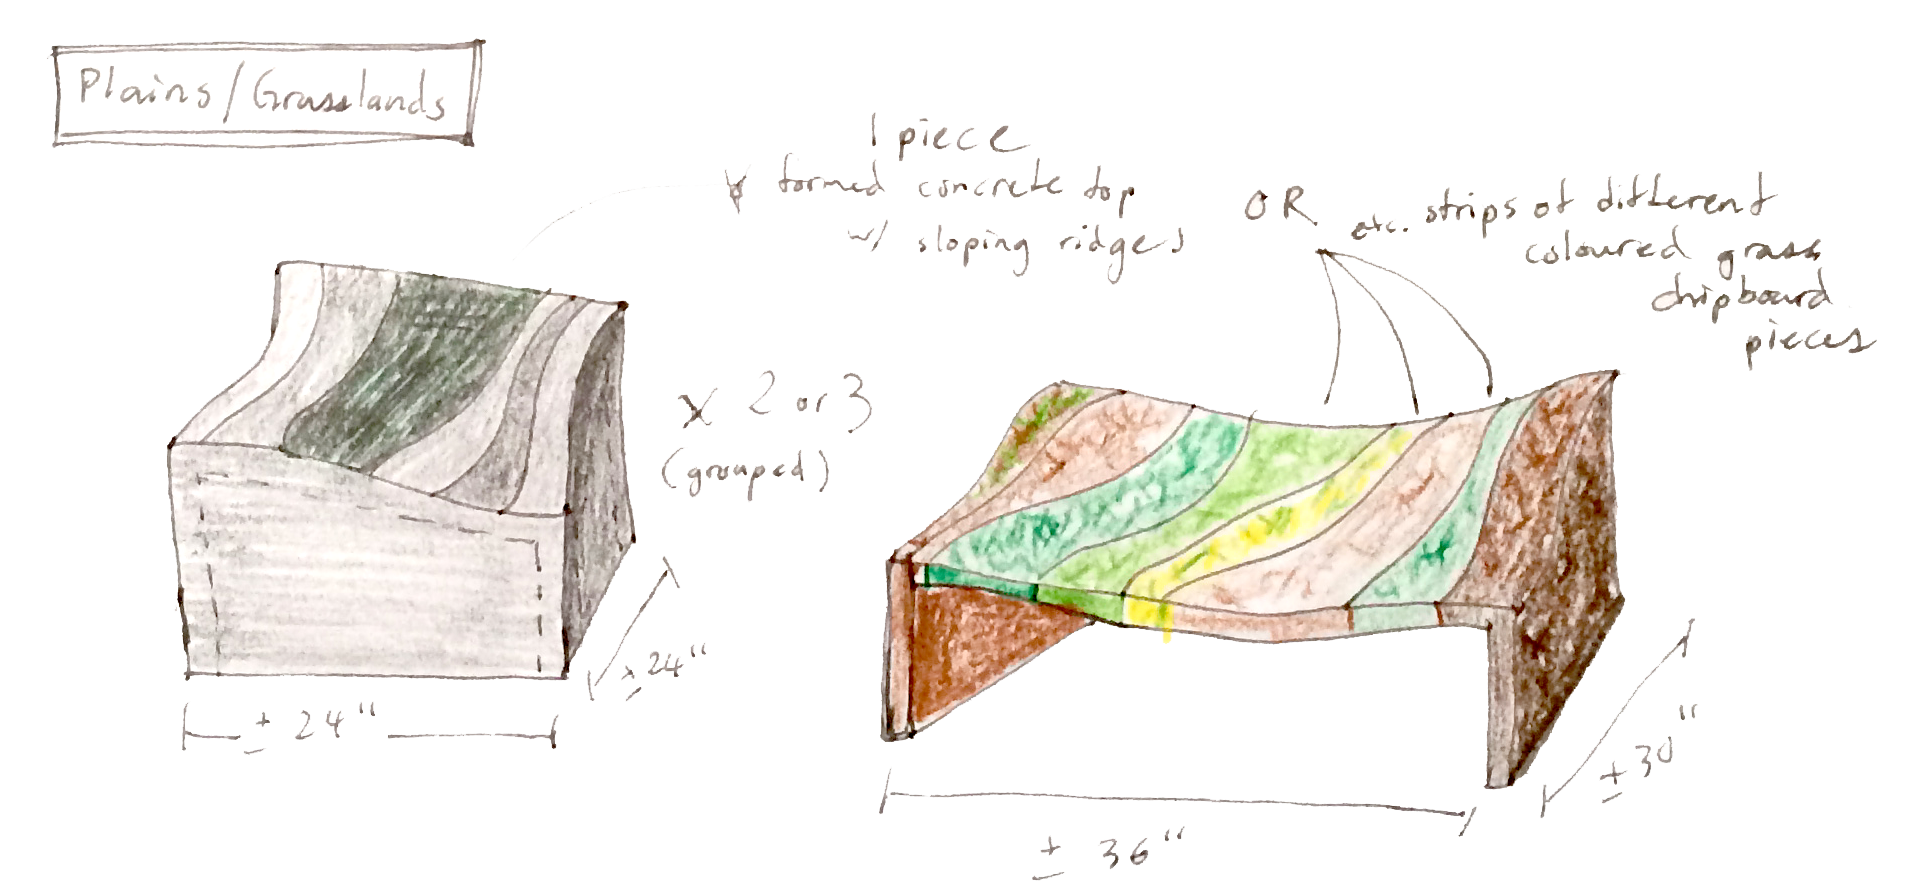 Plains/Grasslands
1 piece
formed concrete top
w/ sloping ridges
OR
etc. strips of different
coloured grass
chipboard
pieces
x 2 or 3
(grouped)
± 24"
± 24"
± 36"
± 30"